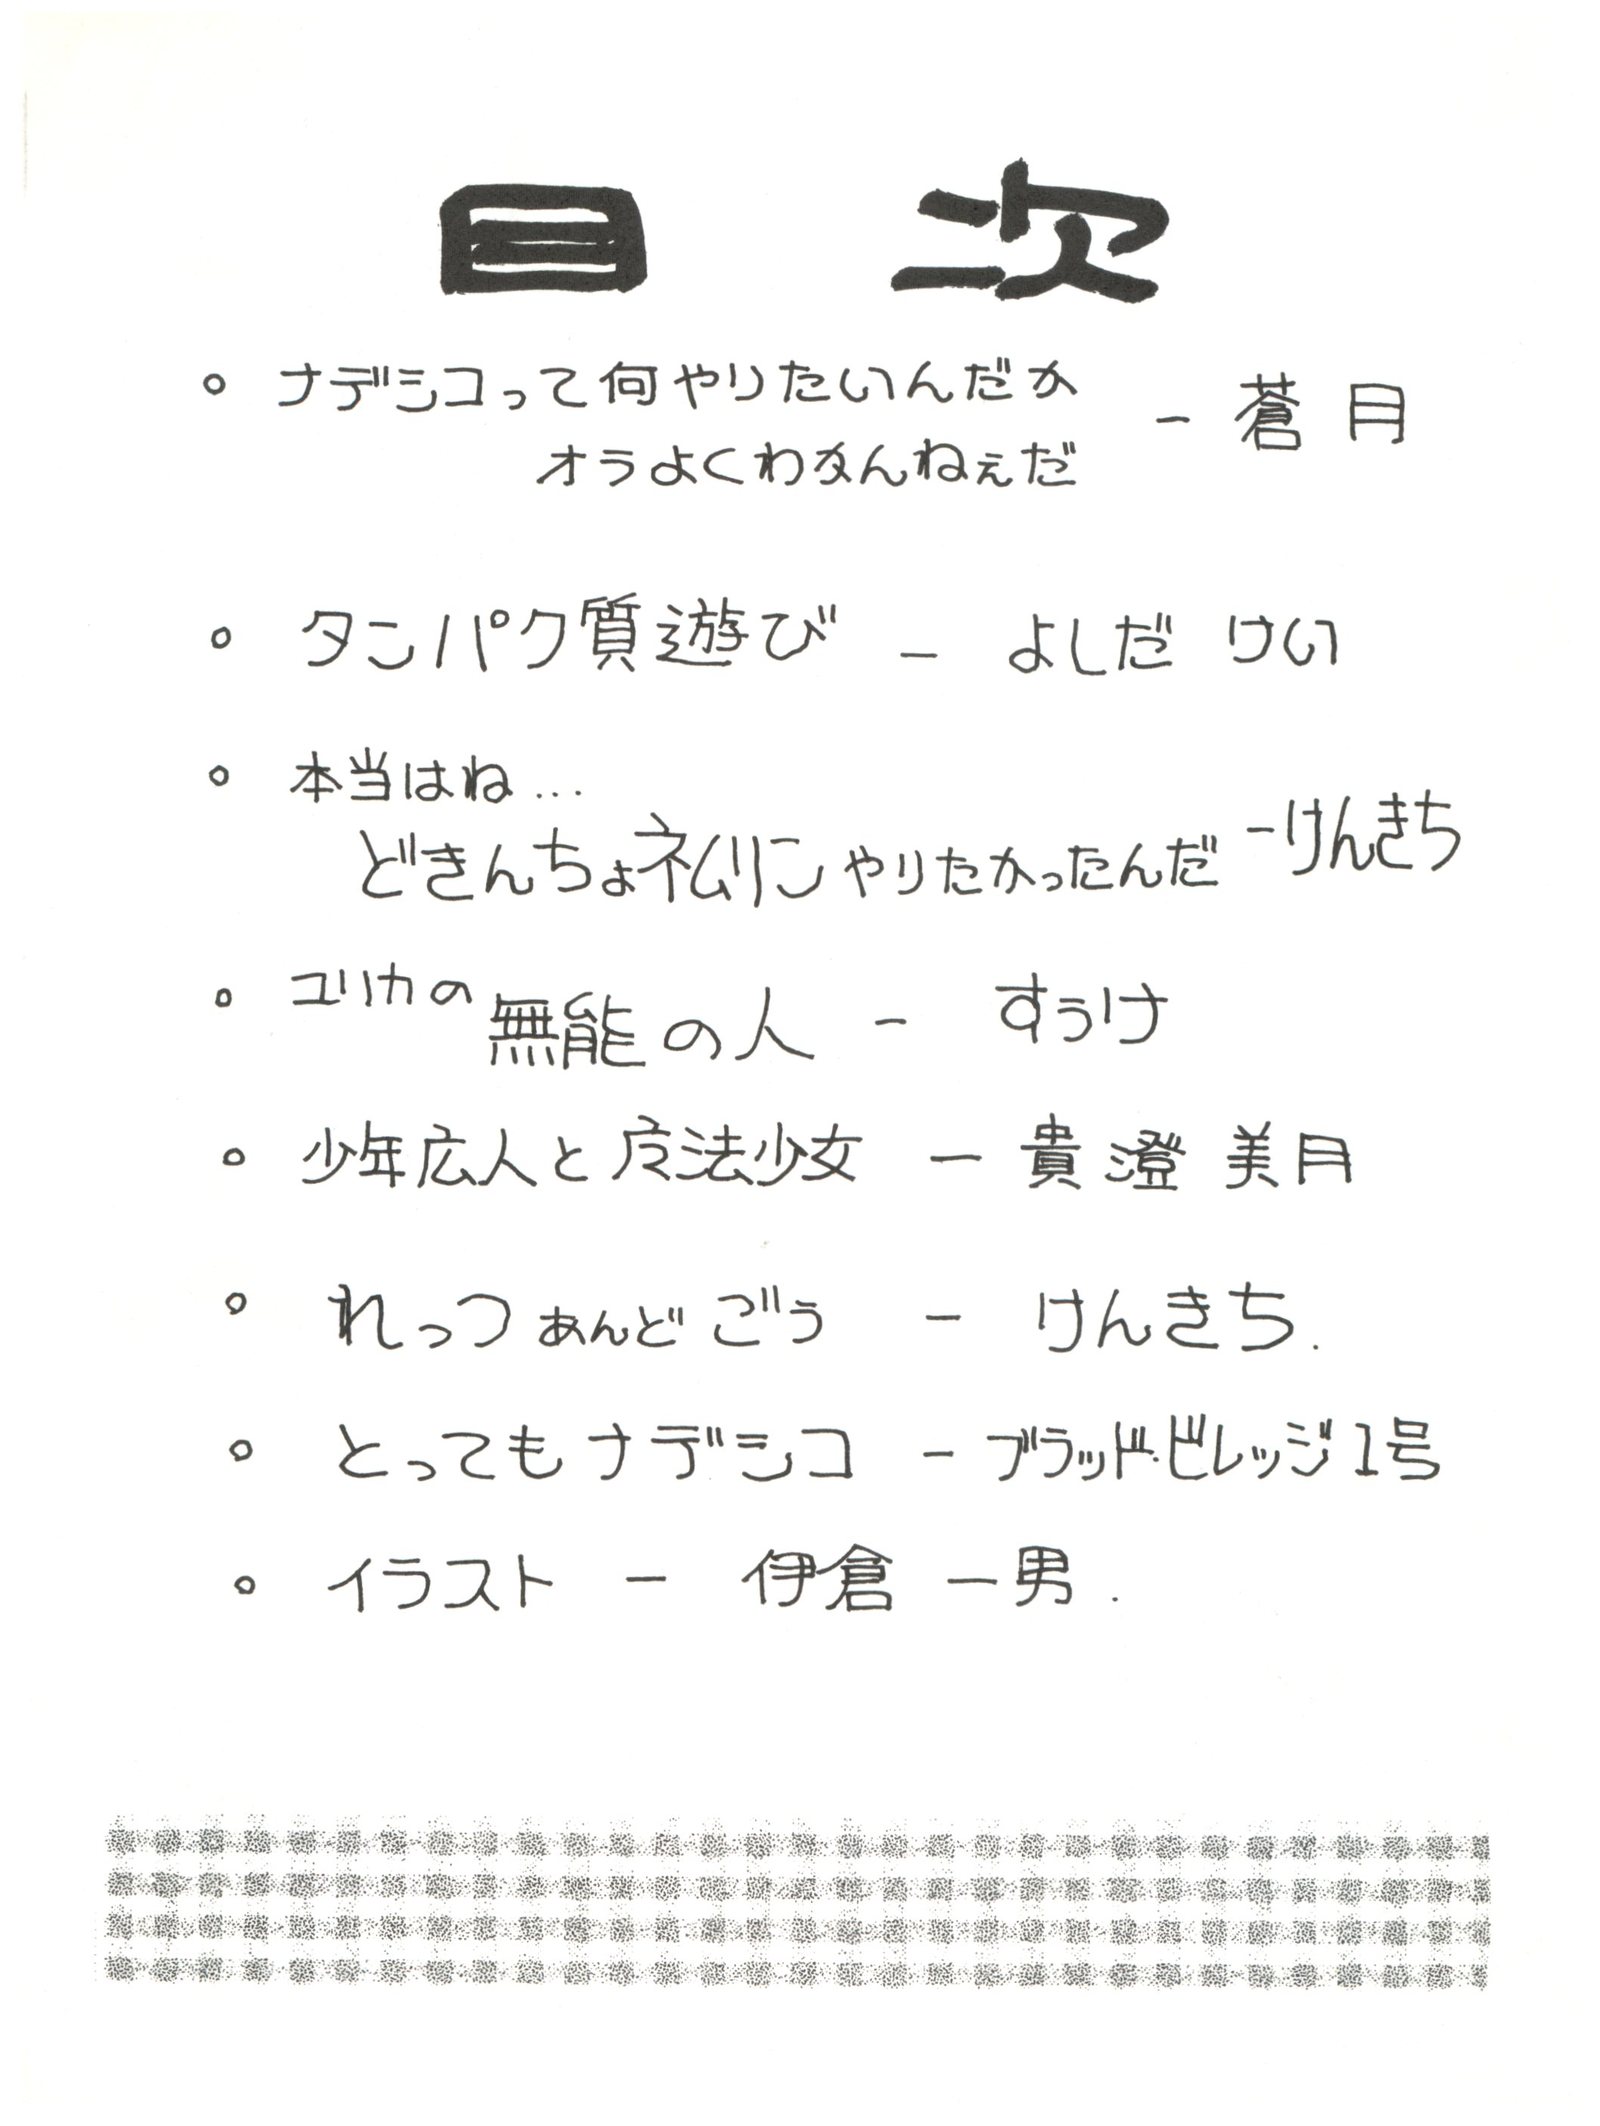 目次
。ナデシコって何やりたいんだか
オラよくわかんねぇだ - 蒼月
。タンパク質遊び - よしだ けい
。本当はね...
どきんちょネムリンやりたかったんだ - けんきち
。ユリカの無能の人 - すぅけ
。少年広人と魔法少女 - 貴澄 美月
。れっつ あんど ごう - けんきち.
。とってもナデシコ - ブラッド・ビレッジ1号
。イラスト - 伊倉 一男.